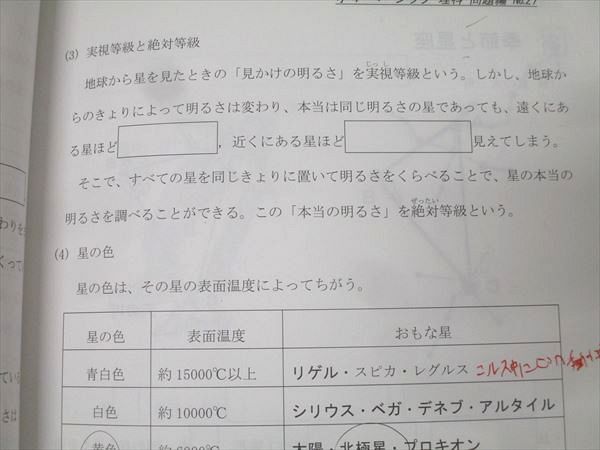 理科 問題編 No.27
(3) 実視等級と絶対等級
じっし
地球から星を見たときの「見かけの明るさ」を実視等級という。しかし、地球か
らのきょりによって明るさは変わり、本当は同じ明るさの星であっても、遠くにあ
る星ほど ，近くにある星ほど 見えてしまう。
そこで、すべての星を同じきょりに置いて明るさをくらべることで、星の本当の
ぜったい
明るさを調べることができる。この「本当の明るさ」を絶対等級という。
(4) 星の色
星の色は、その星の表面温度によってちがう。
星の色 表面温度 おもな星
青白色 約 15000℃以上 リゲル・スピカ・レグルス
白色 約 10000℃ シリウス・ベガ・デネブ・アルタイル
黄色 約 6000℃ 太陽・北極星・プロキオン